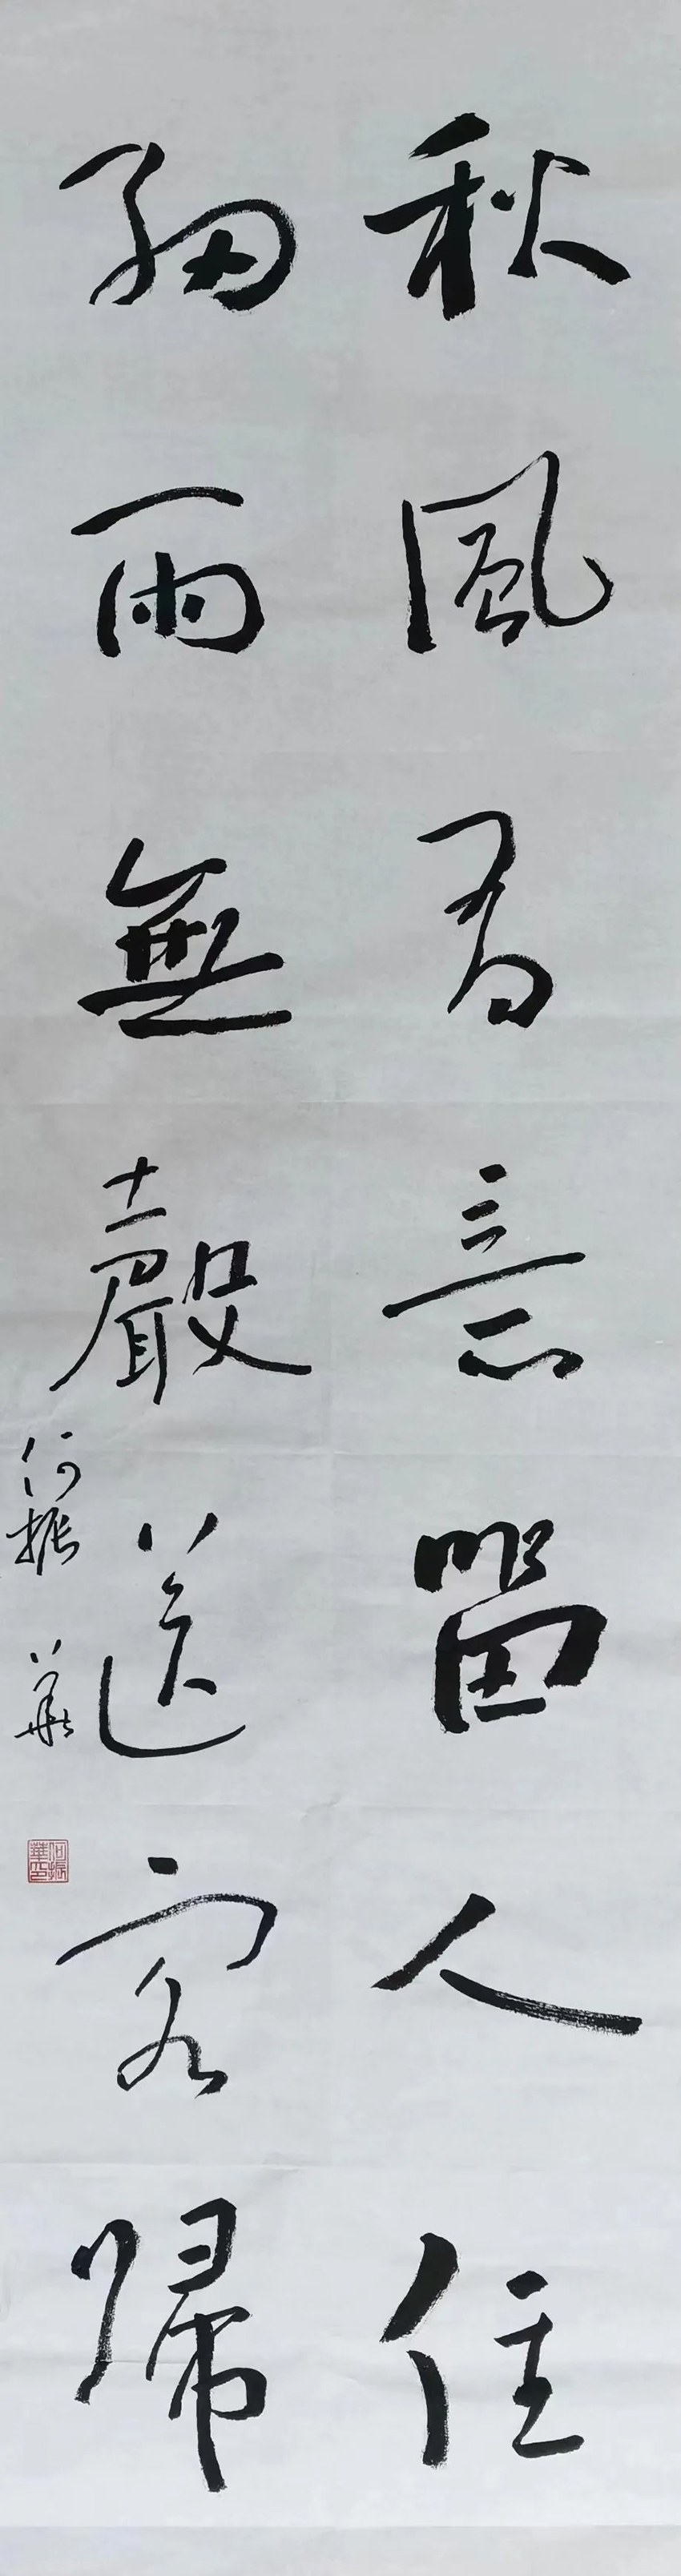 秋風有意留人住
細雨無聲送客歸
何振華
何振華印